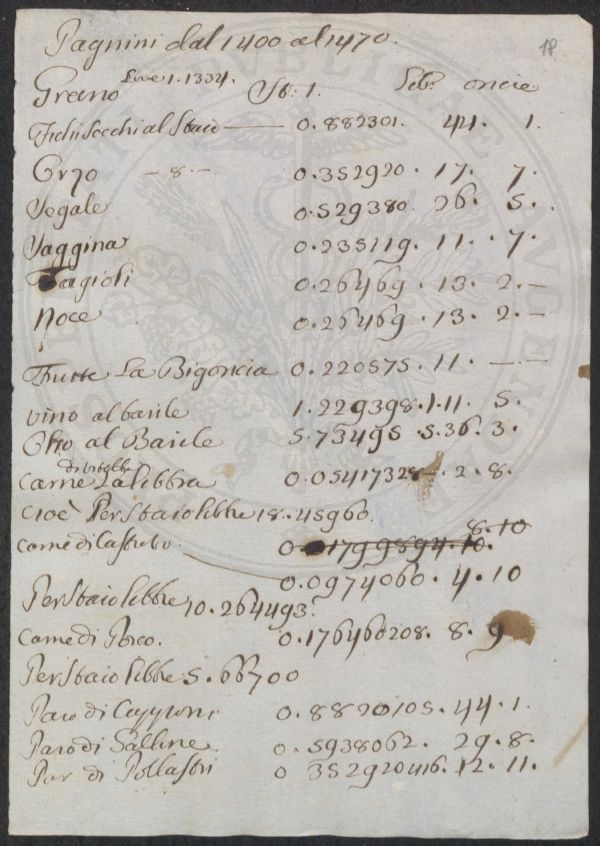 Pagnini dal 1400 al 1470.
18
Grano Lire 1.1334. St: 1. Lib:e oncie
Fichi secchi al Staio — 0.882301. 44. 1.
Orzo — 8. — 0.352920. 17. 7.
Segale 0.529380 26. 5.
Saggina 0.235119. 11. 7.
Fagioli 0.26469. 13. 2. —
Noce 0.26469. 13. 2. —
Frutte La Bigoncia 0.220575. 11. — —
vino al barile 1.229398. 1.11. 5.
Olio al Barile 5.73495 5.36. 3.
Carne di vitella La libbra 0.05417328 — . 2. 8.
cioè Per Staio libbre 18.45960.
8.10
carne di Castrato. 0. 1799894. 10.
0.0974060. 4. 10
Per Staio libbre 10.264493.
Carne di Porco. 0.176460208. 8. 9
Per Staio libbre 5.66700
Paio di Capponi 0.8820105. 44. 1.
Paro di Galline 0.5938062. 29. 8.
Par di Pollastri 0 352920416. 12. 11.